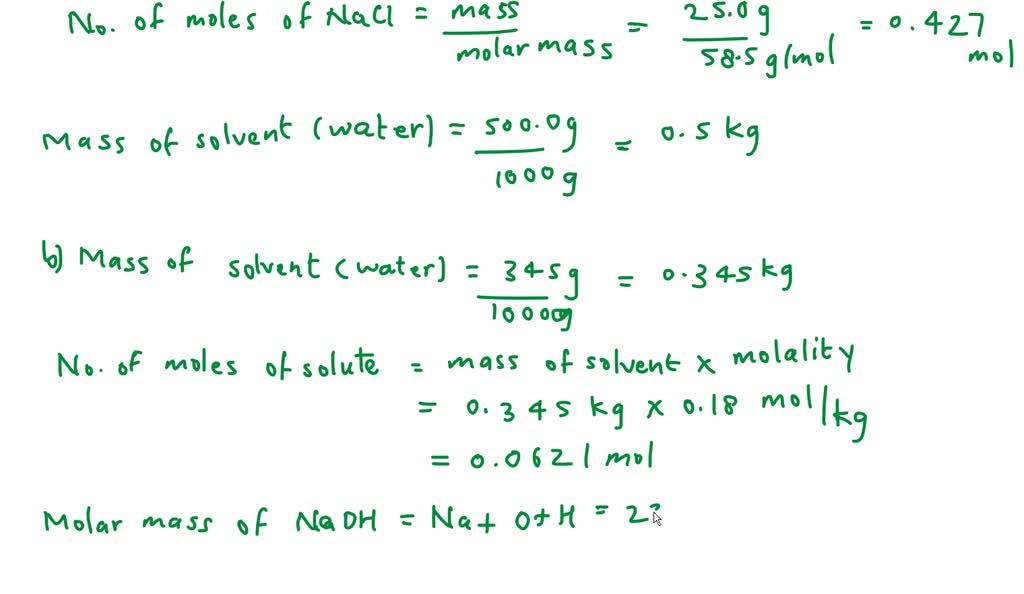 No. of moles of NaCl = mass / molar mass = 25.0g / 58.5 g/mol = 0.427 mol
Mass of solvent (water) = 500.0g / 1000g = 0.5 kg
b) Mass of solvent (water) = 345g / 1000g = 0.345 kg
No. of moles of solute = mass of solvent x molality
= 0.345 kg x 0.18 mol/kg
= 0.0621 mol
Molar mass of NaOH = Na + O + H =